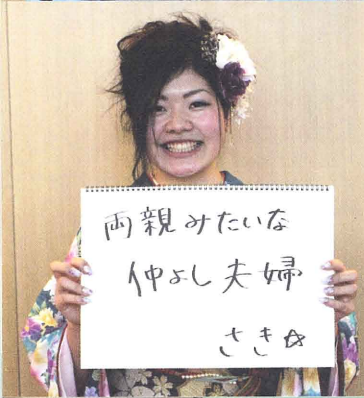 両親みたいな
仲よし夫婦
さき☆